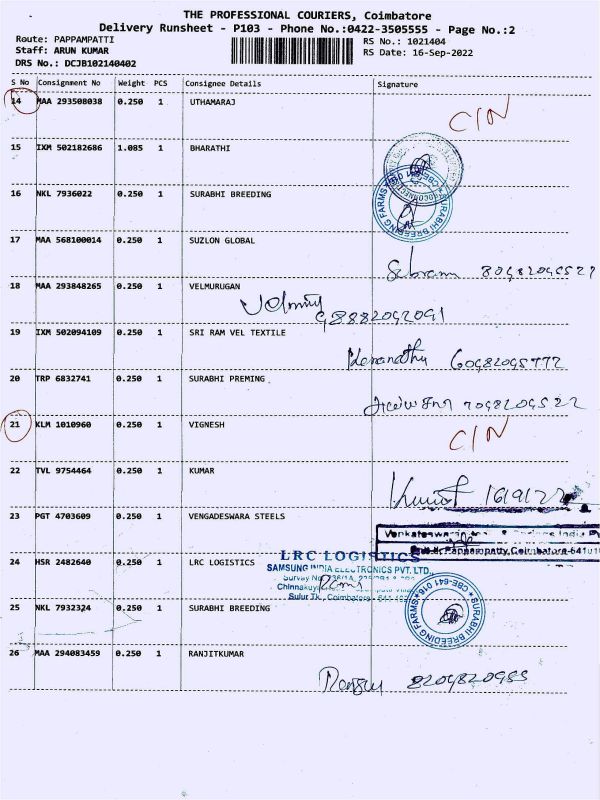 THE PROFESSIONAL COURIERS, Coimbatore
Delivery Runsheet - P103 - Phone No.:0422-3505555 - Page No.:2
Route: PAPPAMPATTI
RS No.: 1021404
Staff: ARUN KUMAR
RS Date: 16-Sep-2022
DRS No.: DCJB102140402
S No Consignment No Weight PCS Consignee Details Signature
14 MAA 293508038 0.250 1 UTHAMARAJ CIN
15 IXM 502182686 1.085 1 BHARATHI
16 NKL 7936022 0.250 1 SURABHI BREEDING
SURABHI BREEDING FARMS * CBE-641 016 *
17 MAA 568100014 0.250 1 SUZLON GLOBAL
18 MAA 293848265 0.250 1 VELMURUGAN
19 IXM 502094109 0.250 1 SRI RAM VEL TEXTILE
20 TRP 6832741 0.250 1 SURABHI PREMING
21 KLM 1010960 0.250 1 VIGNESH CIN
22 TVL 9754464 0.250 1 KUMAR
23 PGT 4703609 0.250 1 VENGADESWARA STEELS
Pappampatty, Coimbatore-641016
24 HSR 2482640 0.250 1 LRC LOGISTICS
LRC LOGISTICS
SAMSUNG INDIA ELECTRONICS PVT. LTD.,
Sulur Tk., Coimbatore
25 NKL 7932324 0.250 1 SURABHI BREEDING
SURABHI BREEDING FARMS * CBE-641 016 *
26 MAA 294083459 0.250 1 RANJITKUMAR